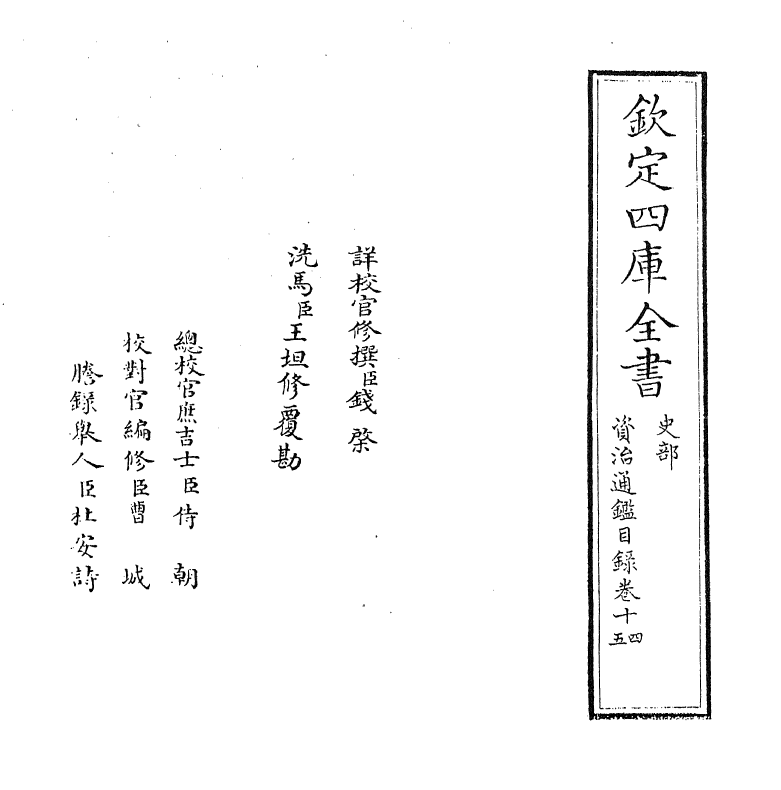 欽定四庫全書
史部
資治通鑑目録卷十四五
詳校官修撰臣錢棨
洗馬臣王坦修覆勘
總校官庶吉士臣侍朝
校對官編修臣曹城
謄録舉人臣杜安詩